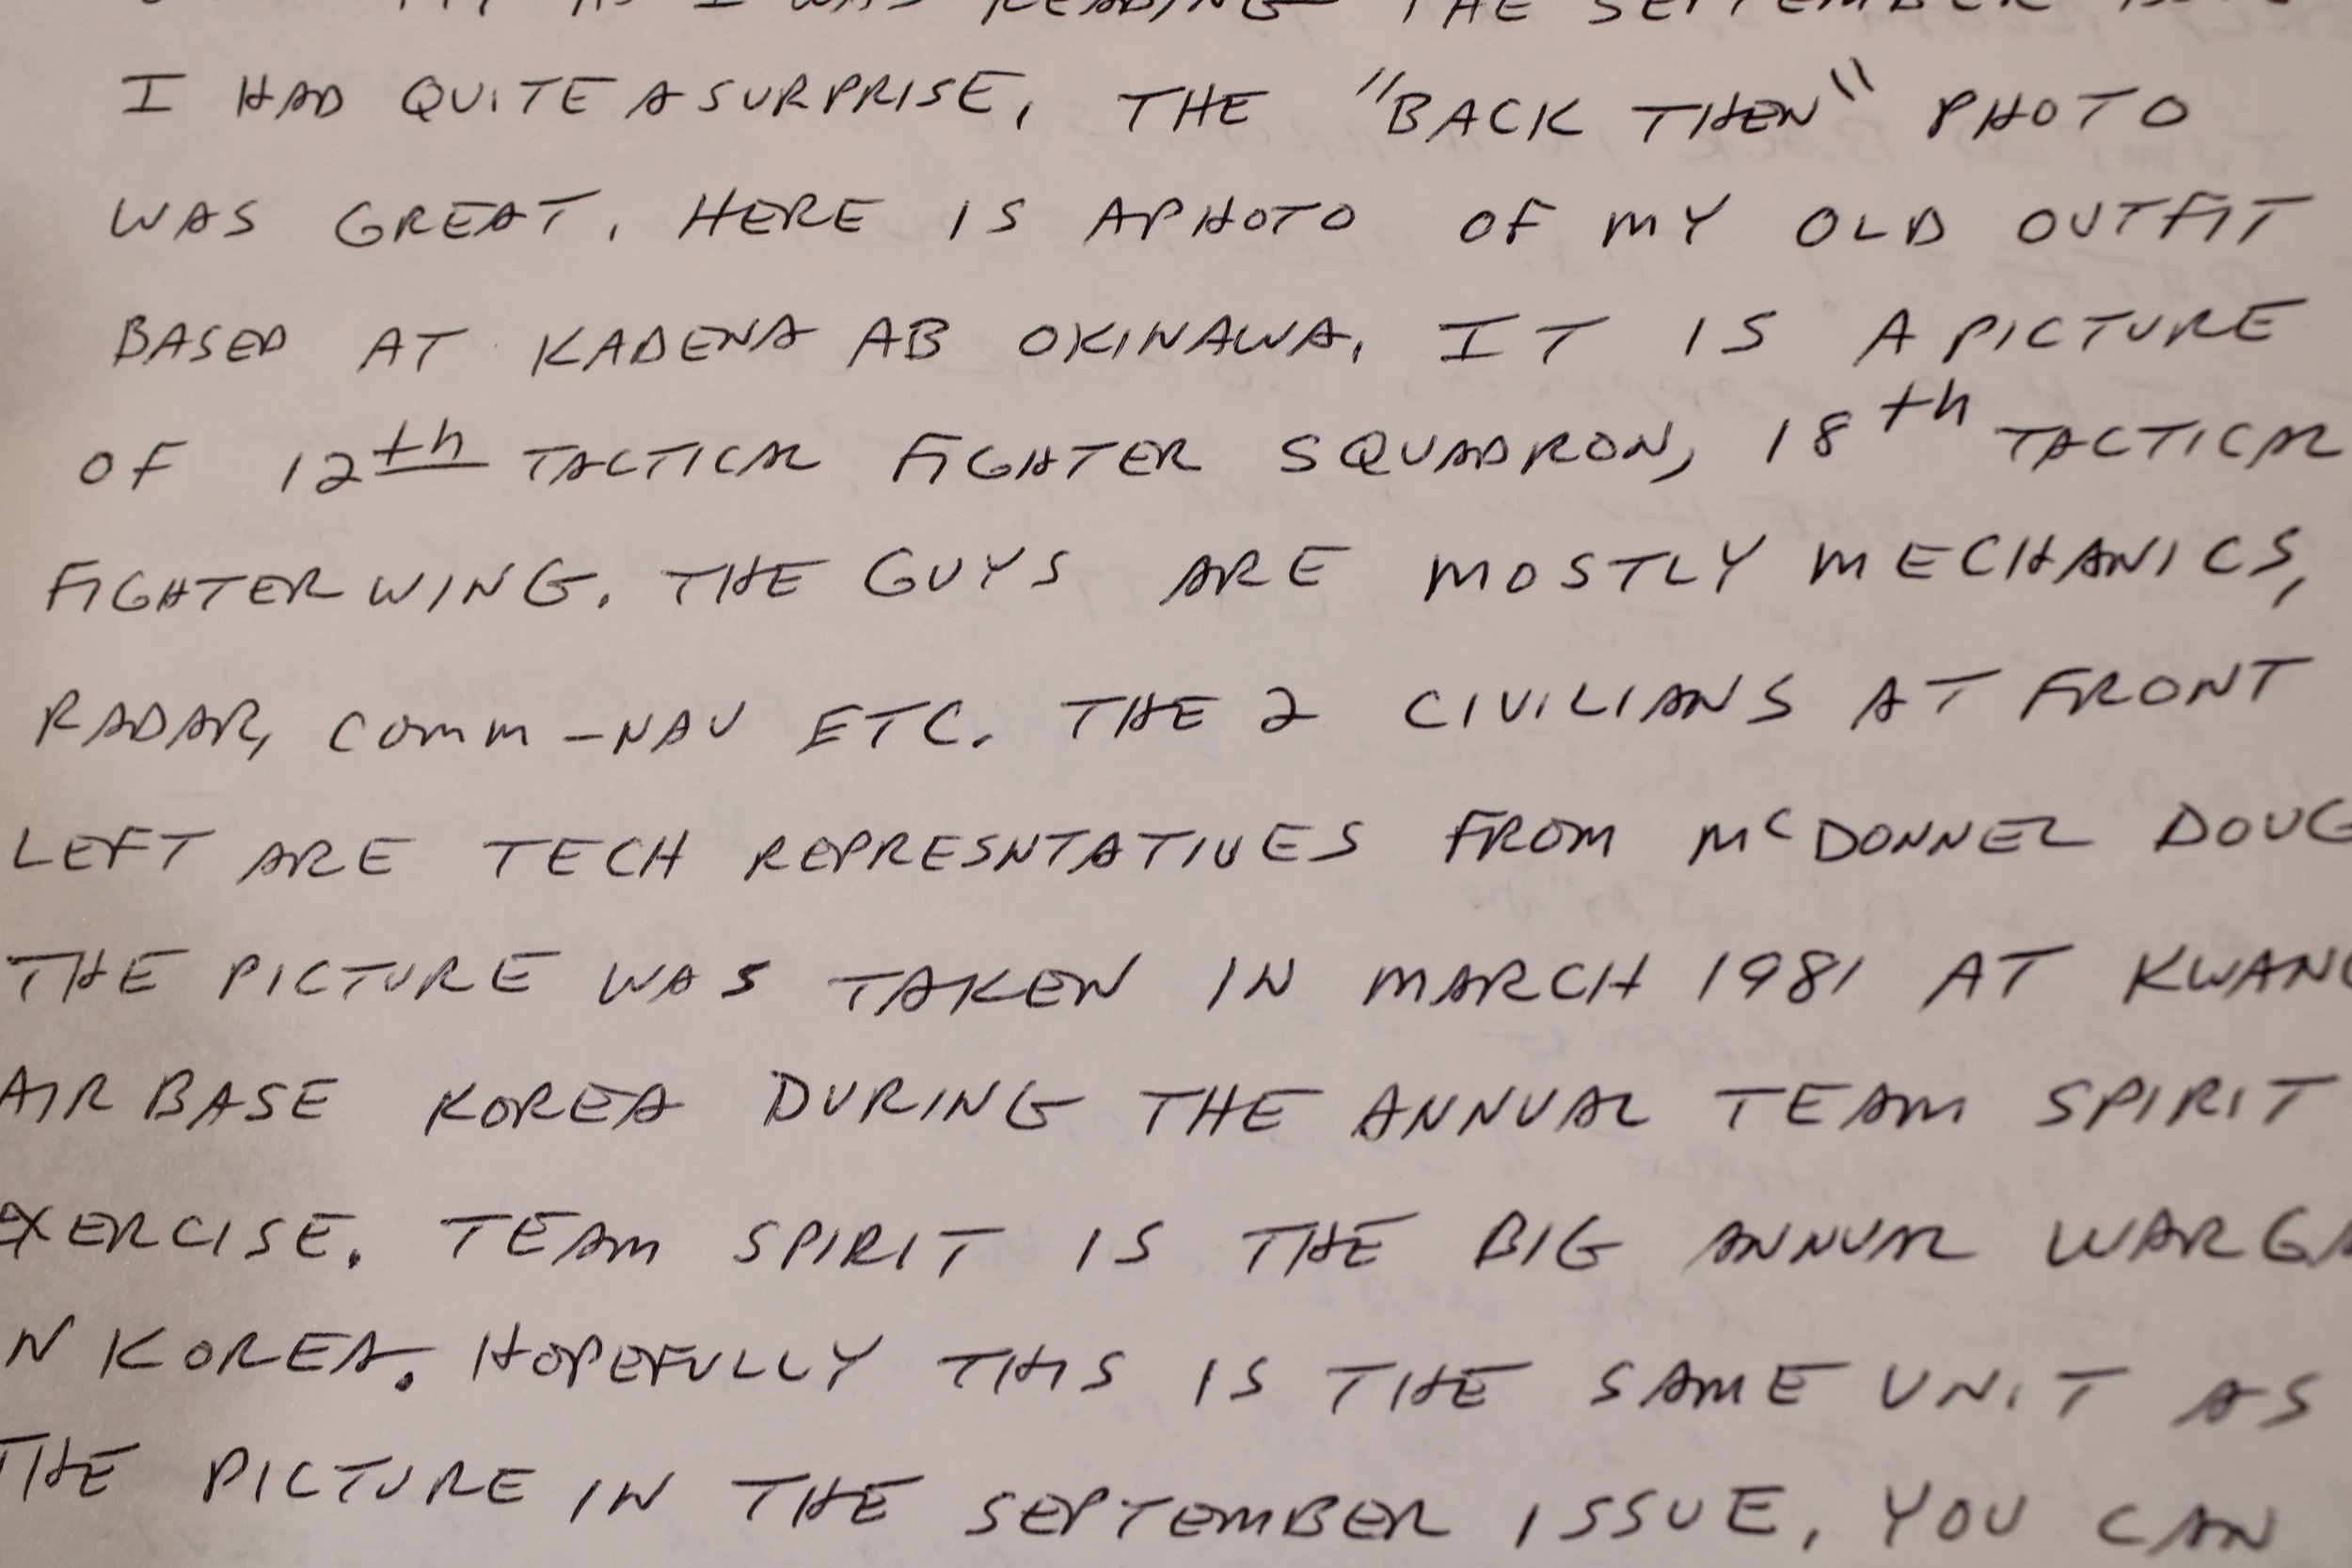 AS I WAS READING THE SEPTEMBER
I HAD QUITE A SURPRISE, THE "BACK THEN" PHOTO
WAS GREAT. HERE IS A PHOTO OF MY OLD OUTFIT
BASED AT KADENA AB OKINAWA. IT IS A PICTURE
OF 12th TACTICAL FIGHTER SQUADRON, 18th TACTICAL
FIGHTER WING. THE GUYS ARE MOSTLY MECHANICS,
RADAR, COMM-NAV ETC. THE 2 CIVILIANS AT FRONT
LEFT ARE TECH REPRESNTATIVES FROM McDONNEL DOUG
THE PICTURE WAS TAKEN IN MARCH 1981 AT KWANG
AIR BASE KOREA DURING THE ANNUAL TEAM SPIRIT
EXERCISE. TEAM SPIRIT IS THE BIG ANNUAL WAR GA
N KOREA. HOPEFULLY THIS IS THE SAME UNIT AS
THE PICTURE IN THE SEPTEMBER ISSUE. YOU CAN